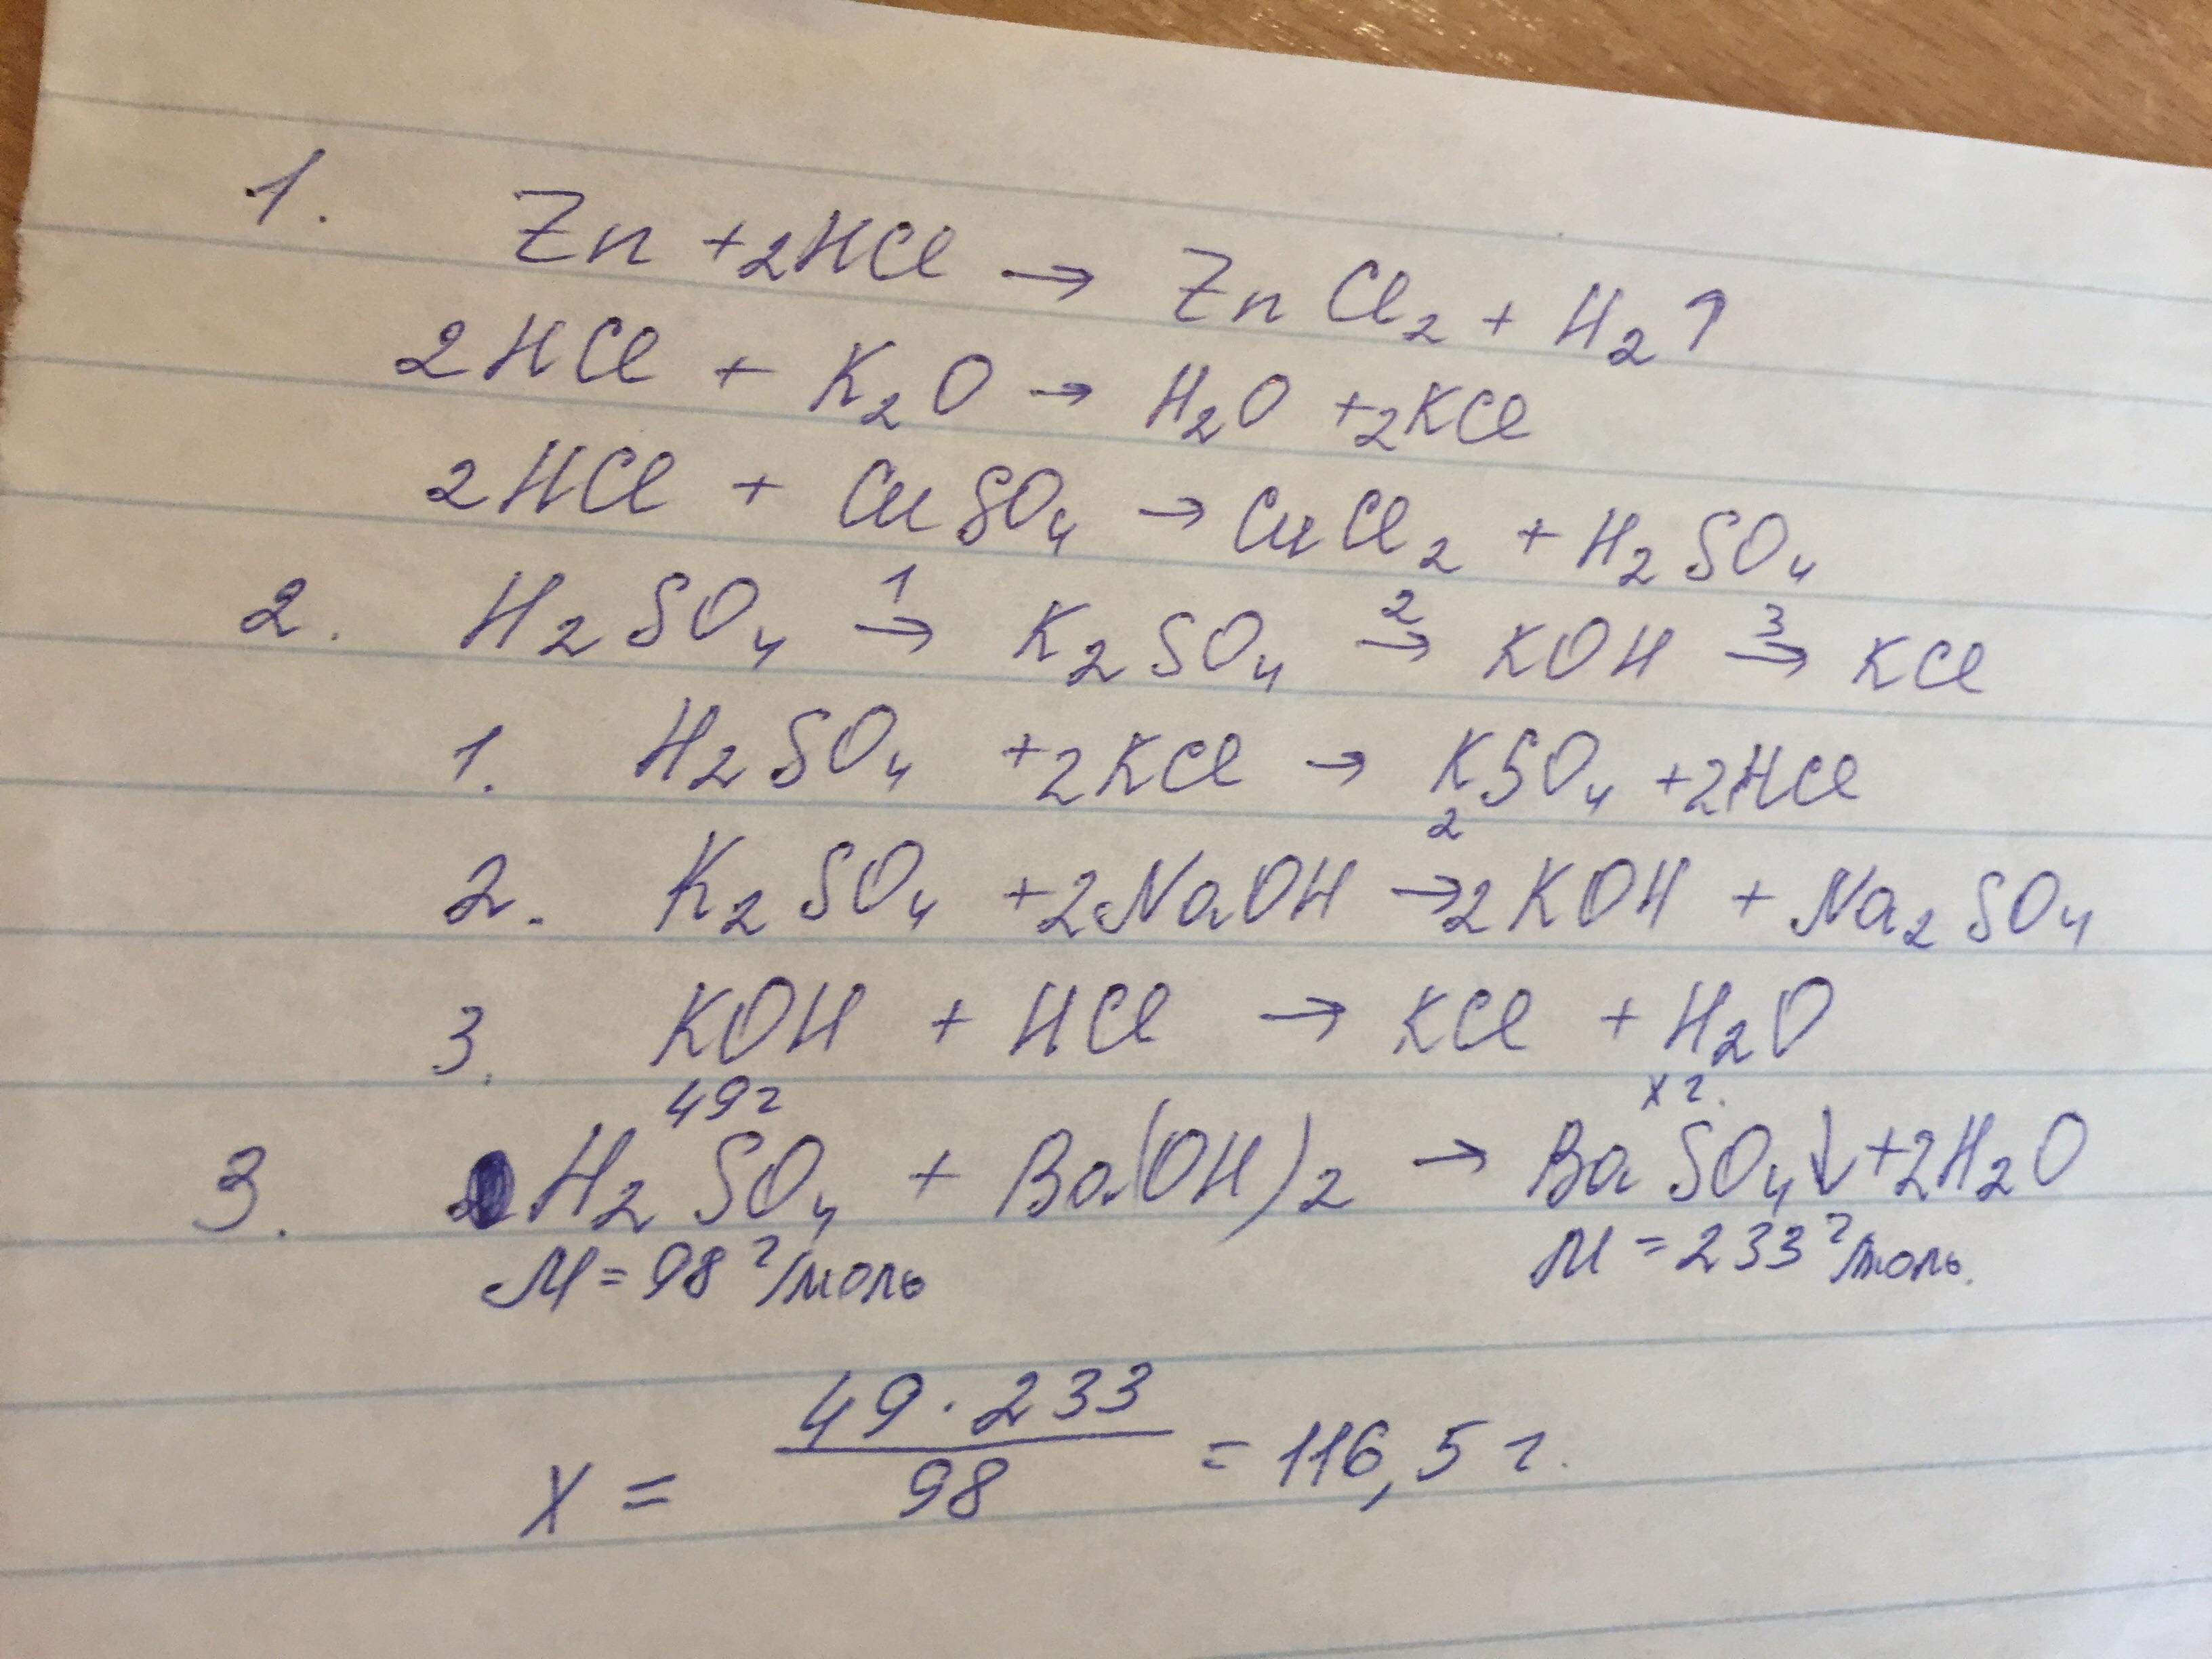 1. Zn + 2HCl → ZnCl₂ + H₂↑
2HCl + K₂O → H₂O + 2KCl
2HCl + CuSO₄ → CuCl₂ + H₂SO₄
2. H₂SO₄ →¹ K₂SO₄ →² KOH →³ KCl
1. H₂SO₄ + 2KCl → K₂SO₄ + 2HCl
2. K₂SO₄ + 2NaOH → 2KOH + Na₂SO₄
3. KOH + HCl → KCl + H₂O
49г x г.
3. H₂SO₄ + Ba(OH)₂ → BaSO₄↓ + 2H₂O
M = 98 г/моль M = 233 г/моль.
x = 49 · 233 / 98 = 116,5 г.